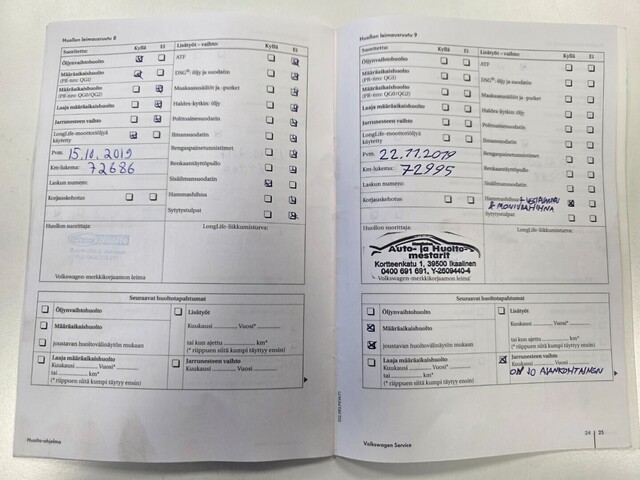 Huollon leimausruutu 8
Suoritettu: Kyllä Ei
Öljynvaihtohuolto
Määräaikaishuolto
(PR-nro: QG1)
Määräaikaishuolto
(PR-nro: QG0/QG2)
Laaja määräaikaishuolto
Jarrunesteen vaihto
LongLife-moottoriöljyä
käytetty
Pvm. 15.10.2019
Km-lukema: 72686
Laskun numero:
Korjauskehotus
Huollon suorittaja:
Volkswagen-merkkikorjaamon leima
Lisätyöt – vaihto: Kyllä Ei
ATF
DSG®: öljy ja suodatin
Maakaasusäiliöt ja -putket
Haldex-kytkin: öljy
Polttoainesuodatin
Ilmansuodatin
Rengaspainetunnistimet
Renkaantäyttöpullo
Sisäilmansuodatin
Hammashihna
Sytytystulpat
LongLife-liikkumisturva:
Seuraavat huoltotapahtumat
Öljynvaihtohuolto
Määräaikaishuolto
joustavan huoltovälisäytön mukaan
Laaja määräaikaishuolto
Kuukausi Vuosi*
tai km*
(* riippuen siitä kumpi täytyy ensin)
Lisätyöt
Kuukausi Vuosi*
tai kun ajettu km*
(* riippuen siitä kumpi täytyy ensin)
Jarrunesteen vaihto
Kuukausi Vuosi
Huolto-ohjelma
Huollon leimausruutu 9
Suoritettu: Kyllä Ei
Öljynvaihtohuolto
Määräaikaishuolto
(PR-nro: QG1)
Määräaikaishuolto
(PR-nro: QG0/QG2)
Laaja määräaikaishuolto
Jarrunesteen vaihto
LongLife-moottoriöljyä
käytetty
Pvm. 22.11.2019
Km-lukema: 72995
Laskun numero:
Korjauskehotus
Huollon suorittaja:
Auto- ja Huolto-
mestarit
Kortteenkatu 1, 39500 Ikaalinen
0400 691 691, Y-2609440-4
Volkswagen-merkkikorjaamon leima
Lisätyöt – vaihto: Kyllä Ei
ATF
DSG®: öljy ja suodatin
Maakaasusäiliöt ja -putket
Haldex-kytkin: öljy
Polttoainesuodatin
Ilmansuodatin
Rengaspainetunnistimet
Renkaantäyttöpullo
Sisäilmansuodatin
Hammashihna + VESIPUMPPU
& MONIURAHIHNA
Sytytystulpat
LongLife-liikkumisturva:
Seuraavat huoltotapahtumat
Öljynvaihtohuolto
Määräaikaishuolto
joustavan huoltovälisäytön mukaan
Laaja määräaikaishuolto
Kuukausi Vuosi*
tai km*
(* riippuen siitä kumpi täytyy ensin)
Lisätyöt
Kuukausi Vuosi*
tai kun ajettu km*
(* riippuen siitä kumpi täytyy ensin)
Jarrunesteen vaihto
Kuukausi Vuosi
ON JO AJANKOHTAINEN
Volkswagen Service
24 | 25